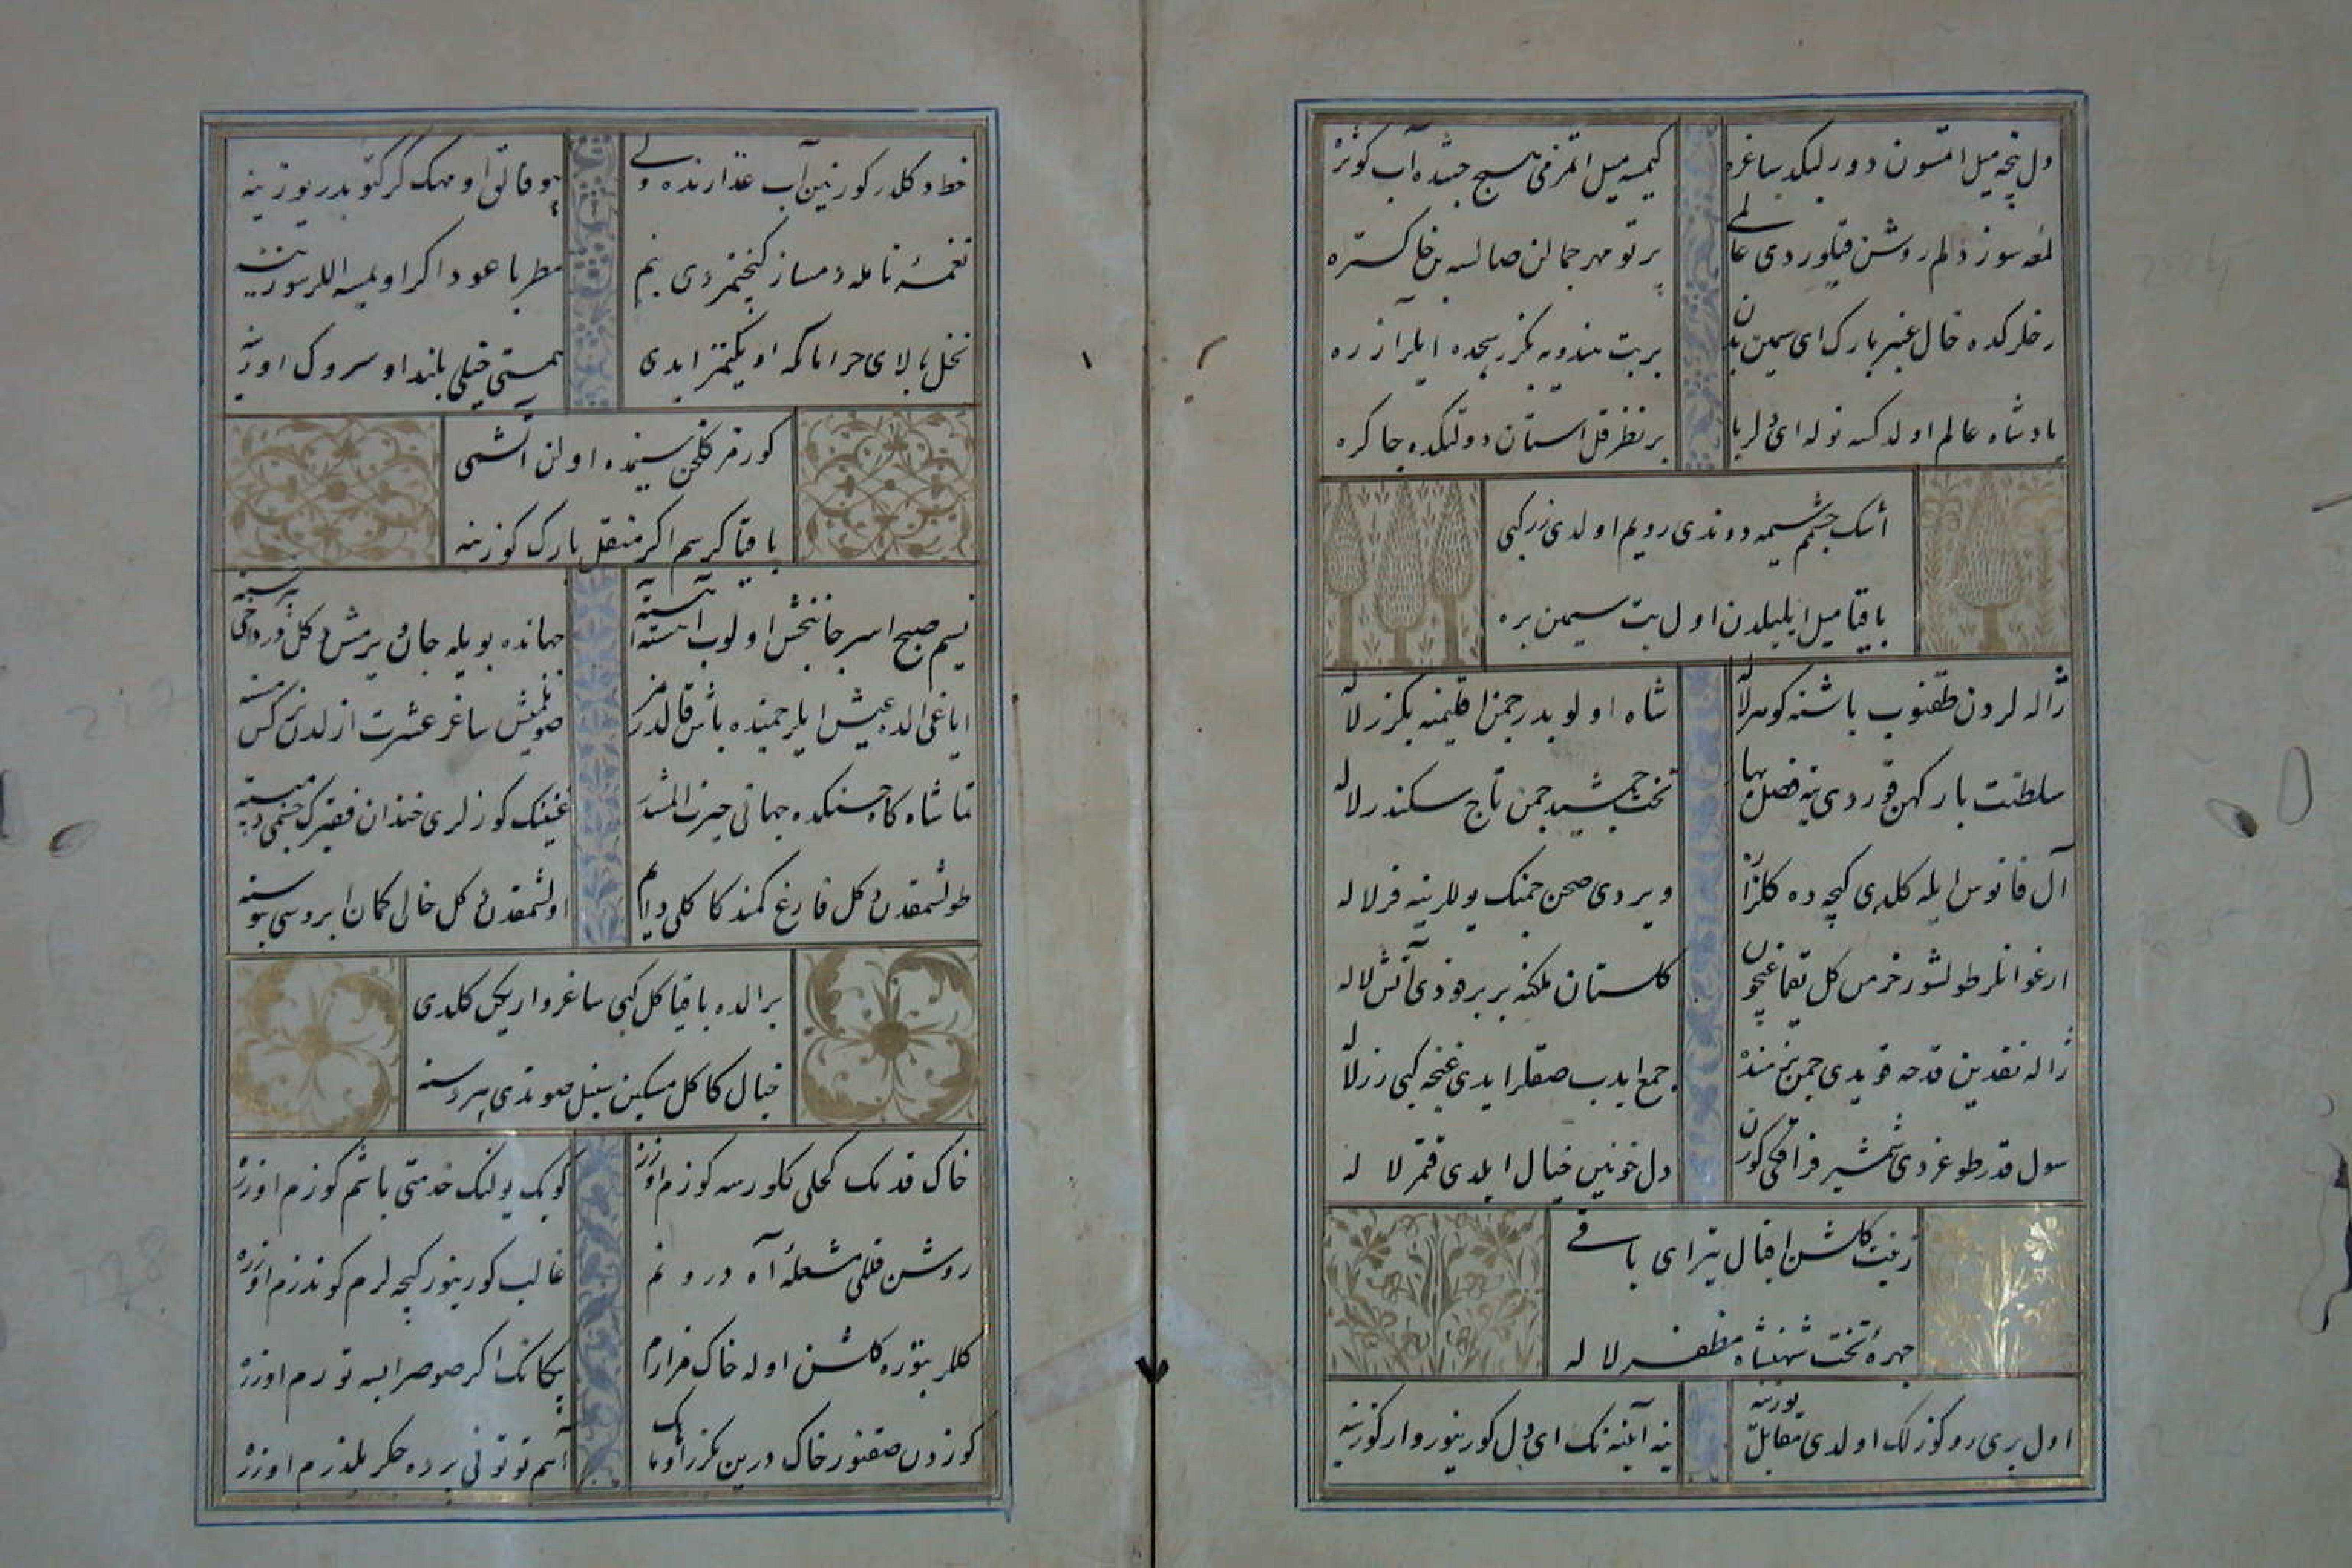 دل نیچه میل اتمسون دور لبکده ساغره
کیمسه میل اتمزمی هیچ جنتده آب کوثره
لمعه سوز دلم روشن قیلوردی عالمی
پرتو مهر جمالن صالسه بن خاکستره
رخلرکده خال عنبربارک ای سیمین بدن
بر بت هندویه بکزر سجده ایلر آزره
پادشاه عالم اولدکسه نوله ای دلربا
بر نظر قل آستان دولتکده چاکره
اشک چشمم سیمه دوندی رویم اولدی زر کبی
باقیا میل ایلیلدن اول بت سیمین بره
ژاله لردن طقنوب باشنه کوهر لاله
شاه اولوبدر چمن اقلیمنه بکزر لاله
سلطنت بارکهن قوردی ینه فصل بهار
تخت جمشید چمن تاج سکندر لاله
آل فانوس ایله کلدی کیچه ده کلزاره
ویردی صحن چمنک یوللرینه فر لاله
ارغوانلر طولشور خرمن کل یقمغیچون
کلستان ملکنه بر بر قودی آتش لاله
ژاله نقدین قدحه قویدی چمن بزمنده
جمع ایدب صقلر ایدی غنچه کبی زر لاله
سول قدر طوغردی شمشیر فراقکی کورن
دل خونین خیال ایلدی قمر لاله
زینت کلشن اقبال یتر ای باقی
چهرهٔ تخت شهنشاه مظفر لاله
اول پری رو کوزلک اولدی مقابل یوزینه
ینه آیینه نک ای دل کورینور وار کوزینه
خط و کللر کورنین آب عذارنده ولی
بو فائق او مهک کرکتوبدر یوزینه
نغمهٔ نامله دمساز کیچنمزدی بنم
مطربا عود اکر اویمسه اللر سوزینه
نخل بالای خرامانکه اویکنمز ایدی
همتی خیلی بلند او سروک اوزینه
کورنر کلخن سینمده اولن آتشمی
باقیا کرسم اکر منقل یارک کوزینه
نسیم صبح اسر جانبخش اولوب آهسته آهسته
جهانده بویله جان ویرمش دکلدر دخی بر خسته
ایاغی الده عیش ایلر چمنده باش قالدرمز
صونلمش ساغر عشرت ازلدن نرکس مسته
تماشاکاه حسنکده جهانی حیرت المشدر
غنینک کوزلری خندان فقیرک چشمی دربسته
طولشمقدن دکل فارغ کمند کاکلی دایم
اولشمقدن دکل خالی کمان ابروسی پیوسته
بر الده باقیا کل کبی ساغر وار یکن کلدی
خیال کاکل مسکین سنبل صوندی بر دسته
خاک قدمک کحلی کلورسه کوزم اوزره
کوبک یولنک خدمتی باشم کوزم اوزره
روشن قلمی مشعلهٔ آه درونم
غالب کورینور کیچه لرم کوندزم اوزره
کللر بتوره کلشن اوله خاک مزارم
پیکانک اکر صو صرابسه توزم اوزره
کوزدن صقنور خاک درین بکزر اویماک
آهم توتونی پرده چکر یلدزم اوزره